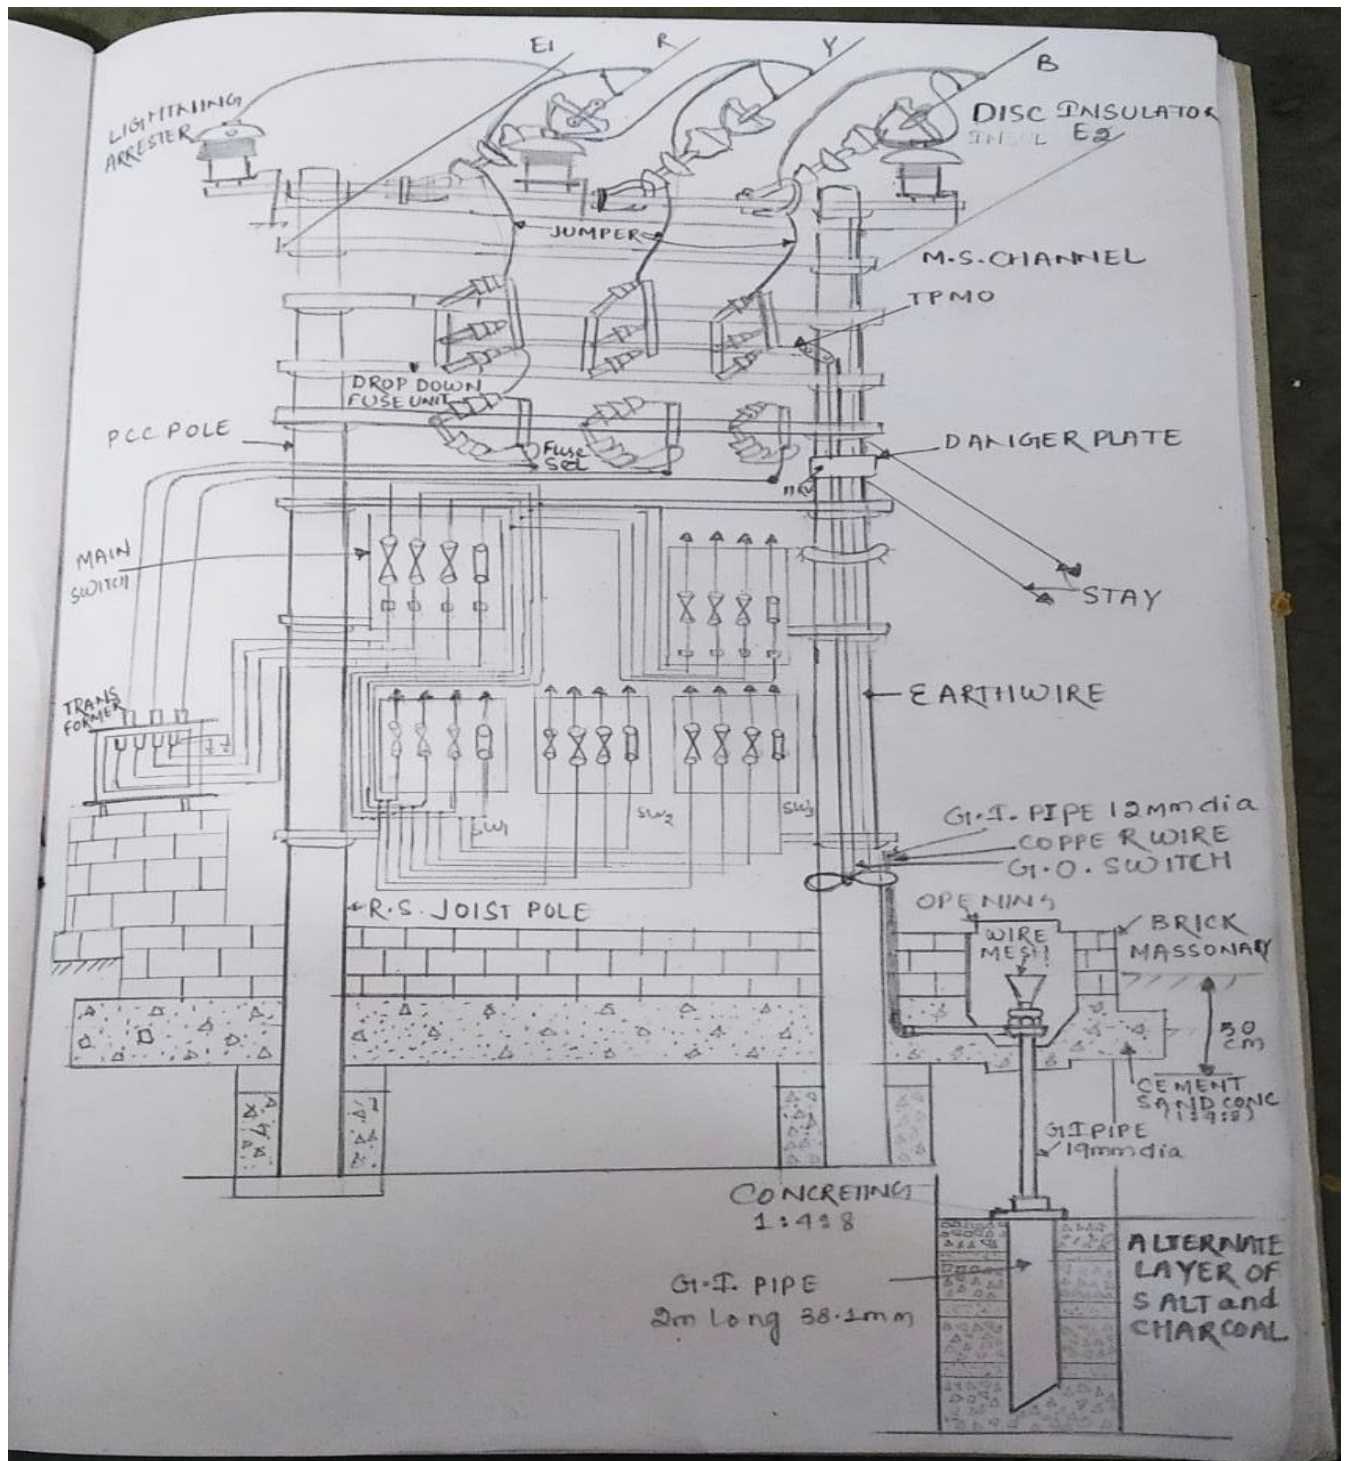 E1
R
Y
B
LIGHTNING
ARRESTER
DISC INSULATOR
INSUL E2
JUMPER
M.S. CHANNEL
TPMO
DROP DOWN
FUSE UNIT
PCC POLE
Fuse
Set
DANGER PLATE
MAIN
SWITCH
STAY
TRANS
FORMER
EARTHWIRE
SW1
SW2
SW3
G.I. PIPE 12mm dia
COPPER WIRE
G.O. SWITCH
OPENING
R.S. JOIST POLE
WIRE
MESH
BRICK
MASSONARY
50
cm
CEMENT
SAND CONC
(1:4:8)
G.I PIPE
19mm dia
CONCRETING
1:4:8
G.I. PIPE
2m long 38.1mm
ALTERNATE
LAYER OF
SALT and
CHARCOAL